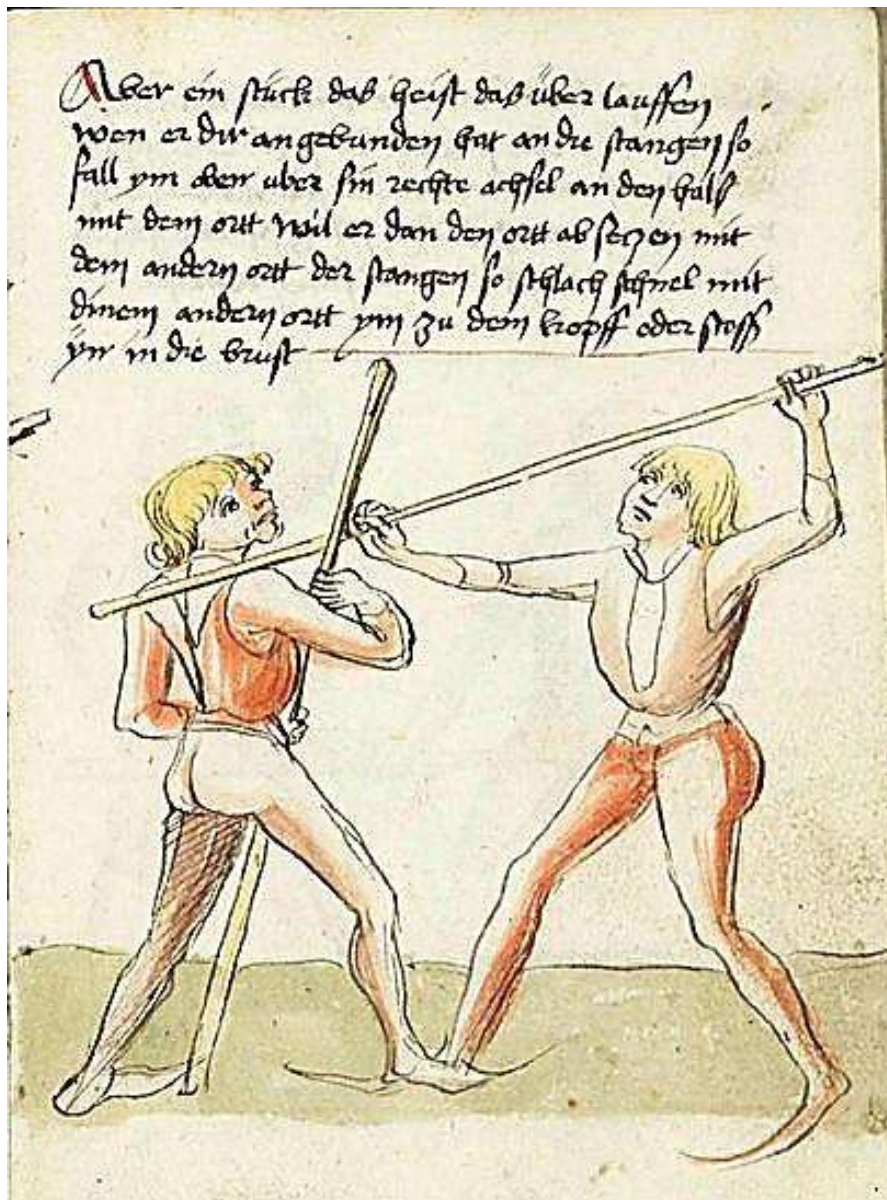 Aber ein stuck das heist das über lauffen
wen er dir angebunden hat an die stangen so
fall ym oben uber sin rechte achsel an den hals
mit dem ortt wil er dan den ortt ab seczen mit
dem andern ortt der stangen so schlach schnel mit
dinem andern ortt ym zu dem kopff oder stoss
yn in die brust